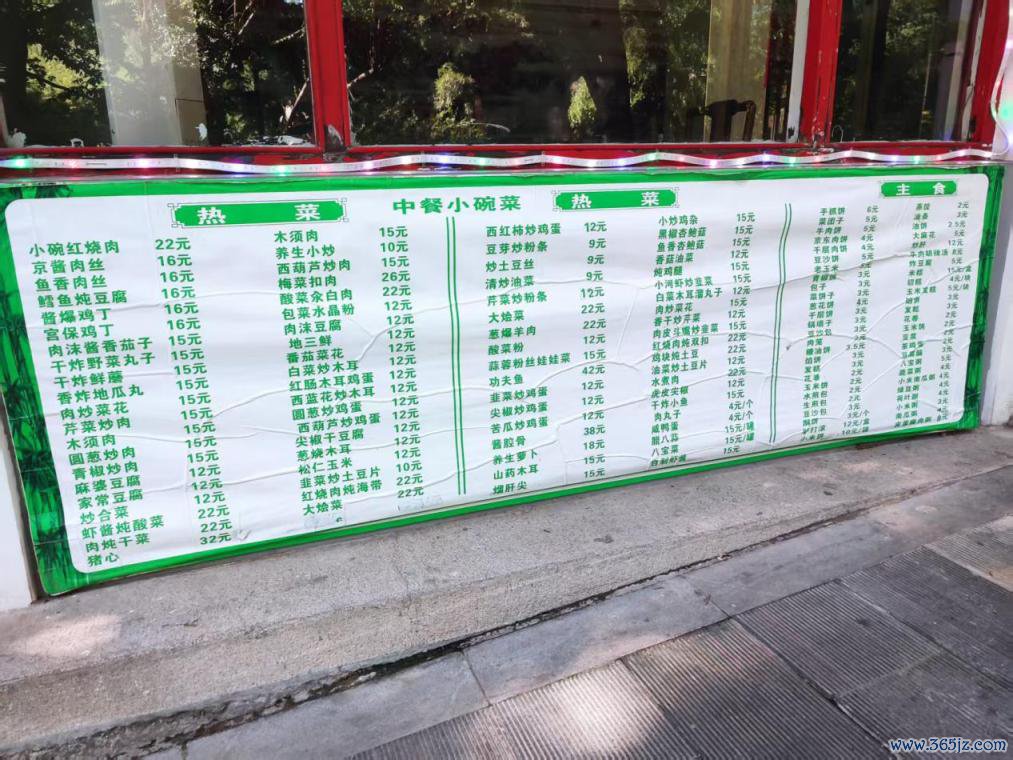 热菜
中餐小碗菜
热菜
主食
小碗红烧肉 22元
京酱肉丝 16元
鱼香肉丝 16元
鳕鱼炖豆腐 16元
酱爆鸡丁 16元
宫保鸡丁 16元
肉沫酱香茄子 15元
干炸野菜丸子 15元
干炸鲜蘑 15元
香炸地瓜丸 15元
肉炒菜花 15元
芹菜炒肉 15元
木须肉 15元
圆葱炒肉 15元
青椒炒肉 15元
麻婆豆腐 12元
家常豆腐 12元
炒合菜 12元
虾酱炖酸菜 22元
肉炖干菜 22元
猪心 32元
木须肉 15元
养生小炒 10元
西葫芦炒肉 15元
梅菜扣肉 26元
酸菜汆白肉 22元
包菜水晶粉 12元
肉沫豆腐 12元
地三鲜 12元
番茄菜花 12元
白菜炒木耳 12元
红肠木耳鸡蛋 12元
西蓝花炒木耳 12元
圆葱炒鸡蛋 12元
西葫芦炒鸡蛋 12元
尖椒干豆腐 12元
葱烧木耳 12元
松仁玉米 15元
韭菜炒土豆片 10元
红烧肉炖海带 22元
大烩菜
西红柿炒鸡蛋 12元
豆芽炒粉条 9元
炒土豆丝 9元
清炒油菜 9元
芹菜炒粉条 12元
大烩菜 22元
葱爆羊肉
酸菜粉
蒜蓉粉丝娃娃菜 15元
功夫鱼 42元
韭菜炒鸡蛋 12元
尖椒炒鸡蛋 12元
苦瓜炒鸡蛋 12元
酱腔骨 38元
养生萝卜 18元
山药木耳 15元
熘肝尖 15元
小炒鸡杂 15元
黑椒杏鲍菇 15元
鱼香杏鲍菇 15元
香菇油菜
炖鸡腿
小河虾炒韭菜
白菜木耳溜丸子
肉炒菜花
香干炒芹菜
肉皮斗嘴炒韭菜
红烧肉炖双扣
鸡块炖土豆
油菜炒土豆片
水煮肉
虎皮尖椒
干炸小鱼
肉丸子 4元/个
咸鸭蛋 4元/个
腊八蒜 15元/罐
八宝菜 15元/罐
自制虾酱
手抓饼 6元
菜团子 5元
牛肉饼 5元
京东肉饼 4元
千层肉饼
豆沙包
老玉米
包子
菜饼子
葱花饼
千层饼
豆沙包
肉笼
糖油饼
馅饼
发糕
花卷
玉米饼
生煎包
水煎包
豆沙包
小米饼 10元/罐
蒸饺 2元
油条 3元
油饼 2.5元
大麻花 5元
炒肝
炸豆腐 5元
米糕 15元/盒
切糕 4元/块
玉米发糕
发糕
花卷
玉米浆
豆浆
茶鸡蛋
八宝粥
蔬菜粥
小米南瓜粥
绿豆粥
荷叶粥
小米粥
南瓜粥
www.365jz.com